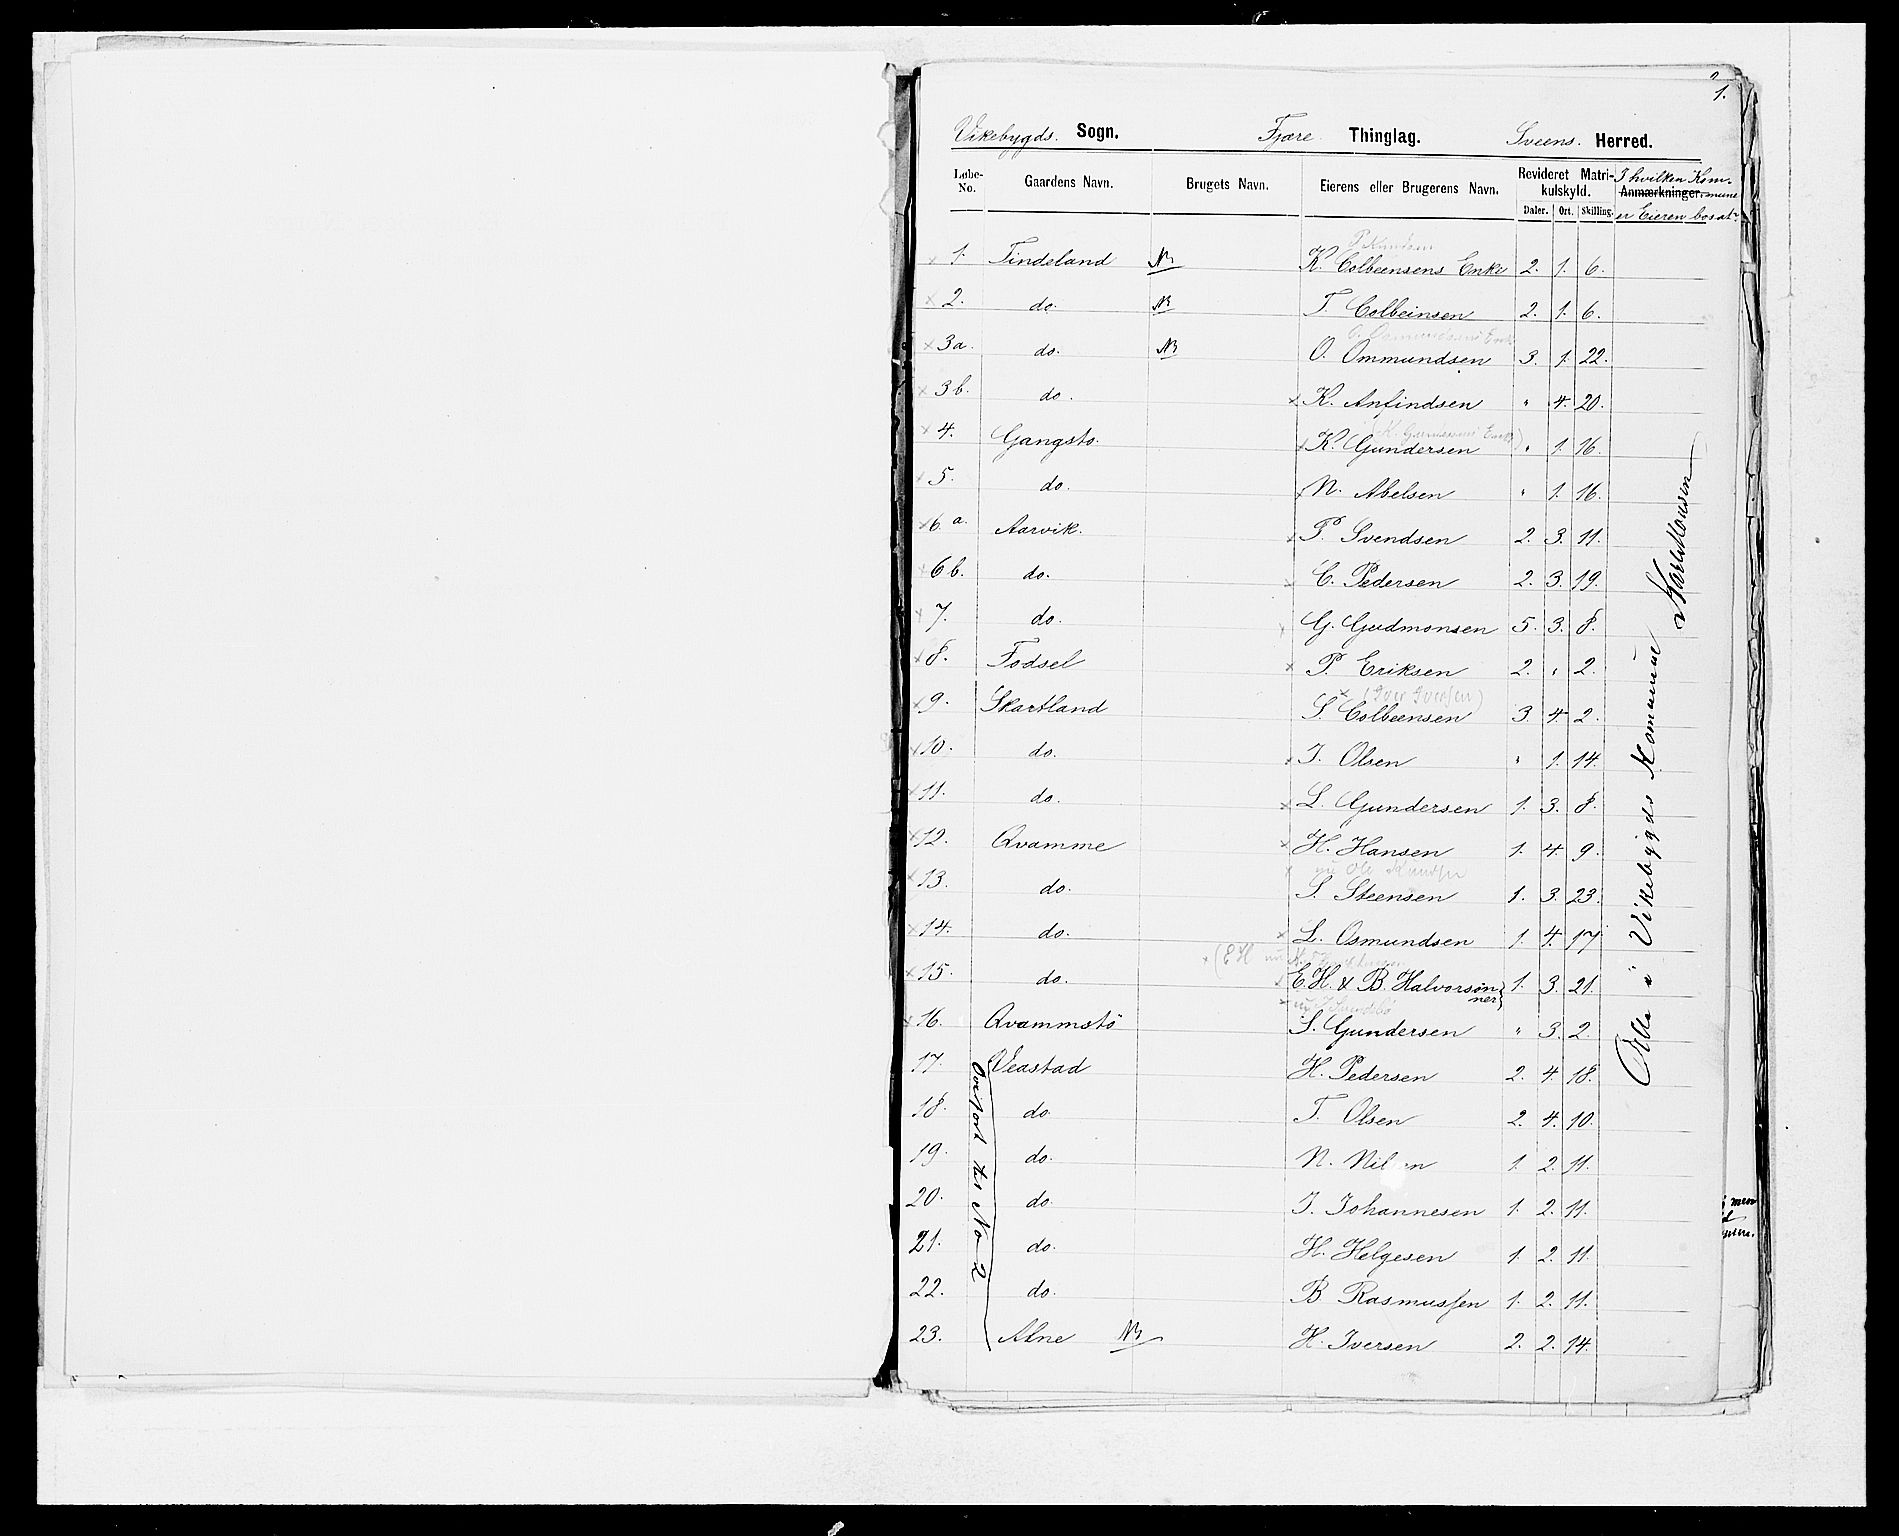 1.
Vikebygds. Sogn. Fjære Thinglag. Sveens. Herred.
Løbe-No. Gaardens Navn. Brugets Navn. Eierens eller Brugerens Navn. Revideret Matrikulskyld. Daler. Ort. Skilling. Anmærkninger. I hvilken Kommune er Eieren bosat
P Knudsen
1. Tindeland NB K. Colbeensens Enke 2. 1. 6.
2. do NB T. Colbeinsen 2. 1. 6.
O. Ommundsens Enke
3a. do. NB O. Ommundsen 3. 1. 22.
3b. do. K. Anfindsen " 4. 20.
(K. Gundersens Enke)
4. Gangstø. K. Gundersen " 1. 16.
5. do. N. Abelsen " 1. 16.
6.a. Aarvik. P. Svendsen 2. 3. 11.
6b. do. C. Pedersen 2. 3. 19.
7. do. G. Gudmonsen 5. 3. 8.
8. Fodsel P. Eriksen 2. " 2.
x (Iver Iversen)
9. Skartland S. Colbeensen 3. 4. 2.
10. do. I. Olsen " 1. 14.
11. do. L. Gundersen 1. 3. 8.
12. Qvamme H. Hansen 1. 4. 9.
nu Ole Knudsen
13. do. S. Steensen 1. 3. 23.
14. do. L. Osmundsen 1. 4. 17
(E H nu
15. do. E. H. & B. Halvorsønner 1. 3. 21.
nu
16. Qvammstö S. Gundersen " 3. 2.
17. Veastad H. Pedersen 2. 4. 18.
18. do. T. Olsen 2. 4. 10.
19. do. N. Nilsen 1. 2. 11.
20. do. I. Johannesen 1. 2. 11.
21. do. H. Helgesen 1. 2. 11.
22. do. B Rasmussen 1. 2. 11.
23. Alne NB H. Iversen 2. 2. 14.
No 2
Alle i Vikebygds Kommune
men